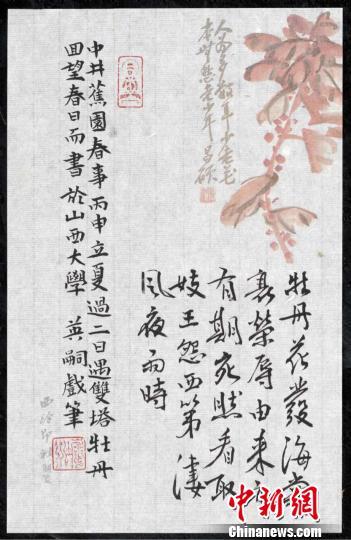 昌碩
牡丹花發海棠
衰榮辱由來
有期宛然看取
妓王怨西第淒
風夜雨時
中井蕉園春事丙申立夏過二日遇雙塔牡丹
回望春日而書於山西大學 英嗣戲筆
中新网
www.chinanews.com